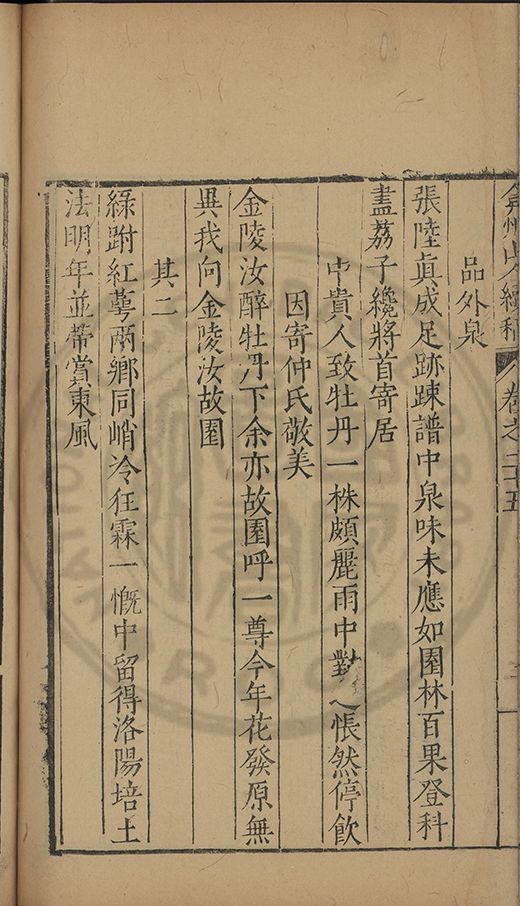 弇州山人續稿 卷之二十五
品外泉
張陸眞成足跡踈譜中泉味未應如園林百果登科
盡荔子纔將首寄居
中貴人致牡丹一株頗麗雨中對之悵然停飲
因寄仲氏敬美
金陵汝醉牡丹下余亦故園呼一尊今年花發原無
異我向金陵汝故園
其二
綠跗紅蕚兩鄉同峭冷狂霖一慨中留得洛陽培土
法明年並蔕賞東風